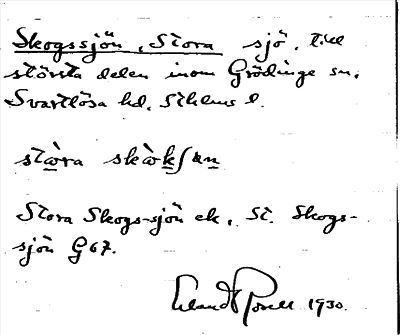 Skogssjön, Stora sjö, till
största delen inom Grödinge sn,
Svartlösa hd, Sthlms l.
stæ̀ra skæ̀kʃɷn
Stora Skogs-sjön ek, St. Skogs-
sjön G67.
Erland Rosell 1930.